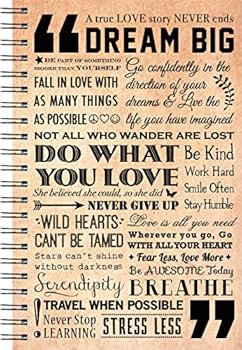 A true LOVE story NEVER ends
DREAM BIG
BE PART OF SOMETHING
BIGGER THAN YOURSELF
Go confidently in the
direction of your
dreams & Live the
life you have imagined
FALL IN LOVE WITH
AS MANY THINGS
AS POSSIBLE
NOT ALL WHO WANDER ARE LOST
DO WHAT
YOU LOVE
Be Kind
Work Hard
Smile Often
Stay Humble
She believed she could, so she did
NEVER GIVE UP
WILD HEARTS
CAN'T BE TAMED
Love is all you need
Wherever you go, Go
WITH ALL YOUR HEART
Stars can't shine
without darkness
Fear Less, Love More
Be AWESOME Today
Serendipity
BREATHE
TRAVEL WHEN POSSIBLE
Never Stop
LEARNING
STRESS LESS